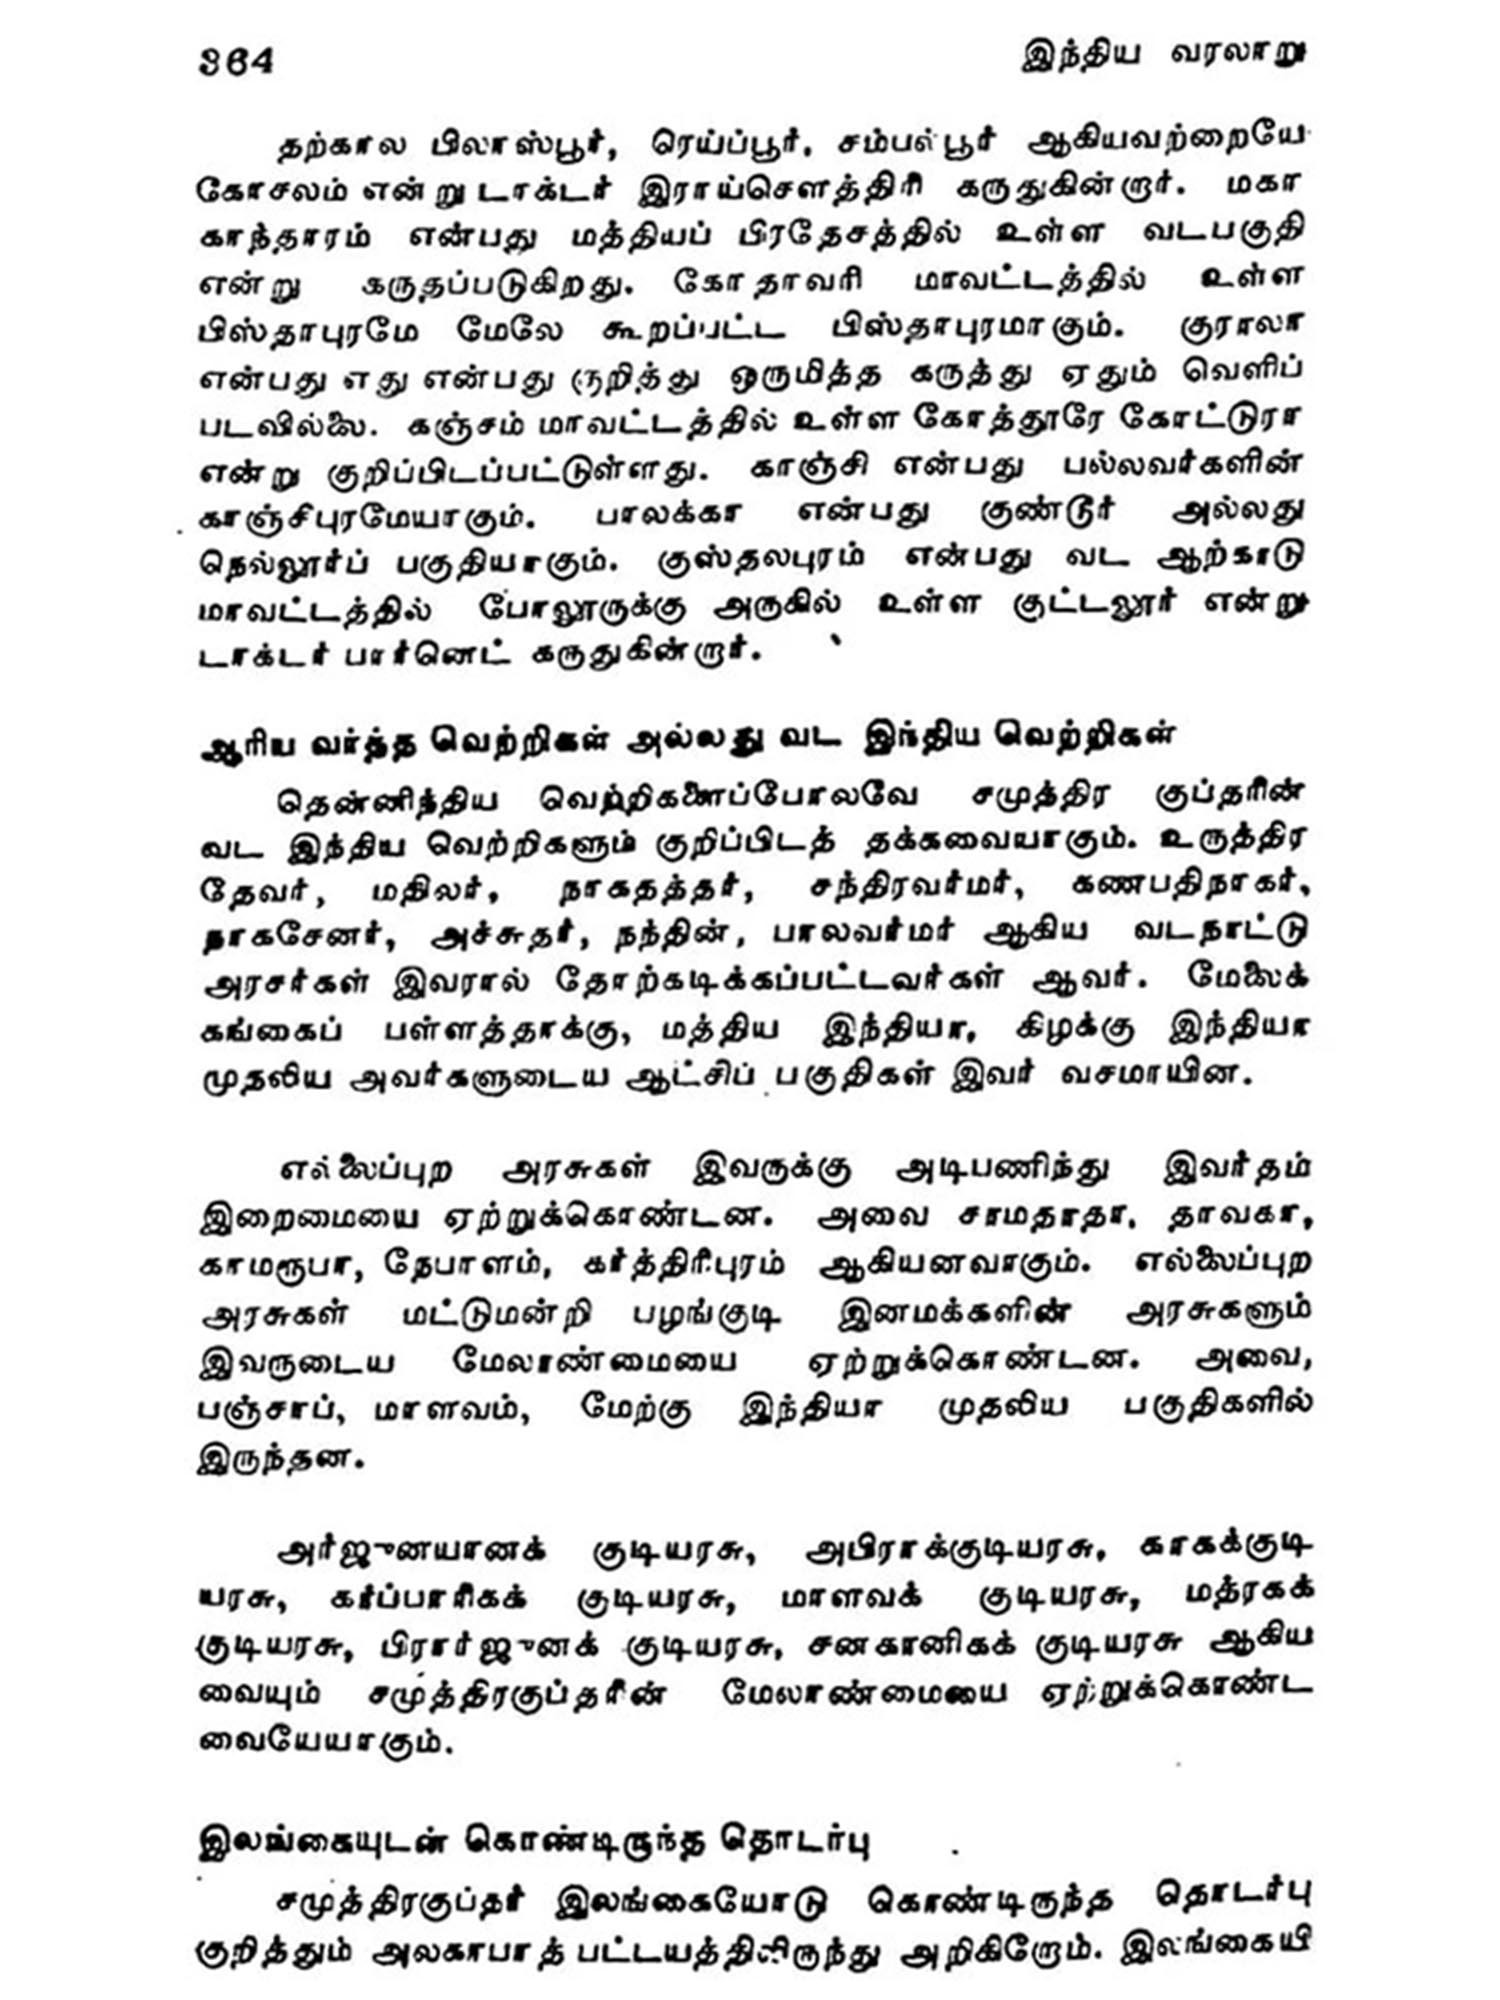 364 இந்திய வரலாறு
தற்கால பிலாஸ்பூர், ரெய்ப்பூர், சம்பல்பூர் ஆகியவற்றையே
கோசலம் என்று டாக்டர் இராய்சௌத்திரி கருதுகின்றார். மகா
காந்தாரம் என்பது மத்தியப் பிரதேசத்தில் உள்ள வடபகுதி
என்று கருதப்படுகிறது. கோதாவரி மாவட்டத்தில் உள்ள
பிஸ்தாபுரமே மேலே கூறப்பட்ட பிஸ்தாபுரமாகும். குராலா
என்பது எது என்பது குறித்து ஒருமித்த கருத்து ஏதும் வெளிப்
படவில்லை. கஞ்சம் மாவட்டத்தில் உள்ள கோத்தூரே கோட்டுரா
என்று குறிப்பிடப்பட்டுள்ளது. காஞ்சி என்பது பல்லவர்களின்
காஞ்சிபுரமேயாகும். பாலக்கா என்பது குண்டூர் அல்லது
நெல்லூர்ப் பகுதியாகும். குஸ்தலபுரம் என்பது வட ஆற்காடு
மாவட்டத்தில் போலூருக்கு அருகில் உள்ள குட்டலூர் என்று
டாக்டர் பார்னெட் கருதுகின்றார்.
ஆரிய வர்த்த வெற்றிகள் அல்லது வட இந்திய வெற்றிகள்
தென்னிந்திய வெற்றிகளைப்போலவே சமுத்திர குப்தரின்
வட இந்திய வெற்றிகளும் குறிப்பிடத் தக்கவையாகும். உருத்திர
தேவர், மதிலர், நாகதத்தர், சந்திரவர்மர், கணபதிநாகர்,
நாகசேனர், அச்சுதர், நந்தின், பாலவர்மர் ஆகிய வடநாட்டு
அரசர்கள் இவரால் தோற்கடிக்கப்பட்டவர்கள் ஆவர். மேலைக்
கங்கைப் பள்ளத்தாக்கு, மத்திய இந்தியா, கிழக்கு இந்தியா
முதலிய அவர்களுடைய ஆட்சிப் பகுதிகள் இவர் வசமாயின.
எல்லைப்புற அரசுகள் இவருக்கு அடிபணிந்து இவர்தம்
இறைமையை ஏற்றுக்கொண்டன. அவை சாமதாதா, தாவகா,
காமரூபா, நேபாளம், கர்த்திரிபுரம் ஆகியனவாகும். எல்லைப்புற
அரசுகள் மட்டுமன்றி பழங்குடி இனமக்களின் அரசுகளும்
இவருடைய மேலாண்மையை ஏற்றுக்கொண்டன. அவை,
பஞ்சாப், மாளவம், மேற்கு இந்தியா முதலிய பகுதிகளில்
இருந்தன.
அர்ஜுனயானக் குடியரசு, அபிராக்குடியரசு, காகக்குடி
யரசு, கர்ப்பாரிகக் குடியரசு, மாளவக் குடியரசு, மத்ரகக்
குடியரசு, பிரார்ஜுனக் குடியரசு, சனகானிகக் குடியரசு ஆகிய
வையும் சமுத்திரகுப்தரின் மேலாண்மையை ஏற்றுக்கொண்ட
வையேயாகும்.
இலங்கையுடன் கொண்டிருந்த தொடர்பு
சமுத்திரகுப்தர் இலங்கையோடு கொண்டிருந்த தொடர்பு
குறித்தும் அலகாபாத் பட்டயத்திலிருந்து அறிகிறோம். இலங்கையி